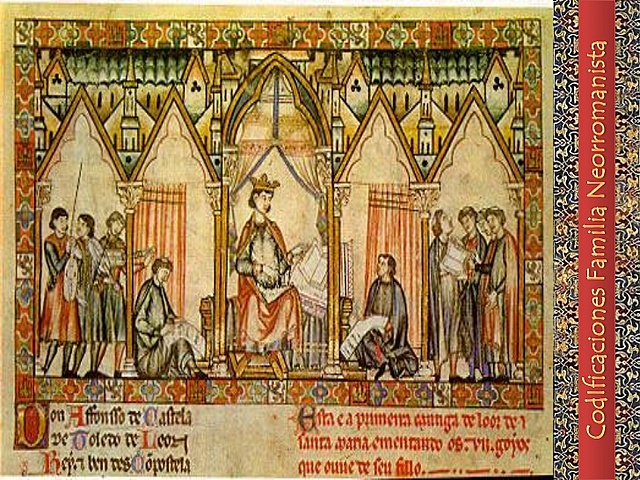 Don Affonsso de Castela
de Toledo de Leon
Rey τ ben des Cõpostela
Esta e a primeira cantiga de loor de
santa maria ementando os .vii. goyos
que ouue de seu fillo.
Codificaciones Familia Neorromanista